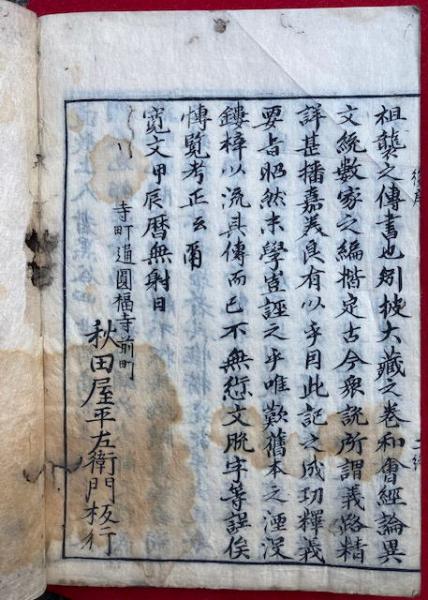 祖襲之傳書也矧披大藏之卷和會經論異
文統數家之編楷定古今衆說所謂義路精
詳甚播嘉美良有以乎因此記之成功釋義
要旨昭然末學豈誣之乎唯歎舊本之湮没
鏤梓以流其傳而已不無愆文脫字等誤俟
博覧考正云爾
寛文甲辰暦無射日
寺町通圓福寺前町
秋田屋平左衛門板行